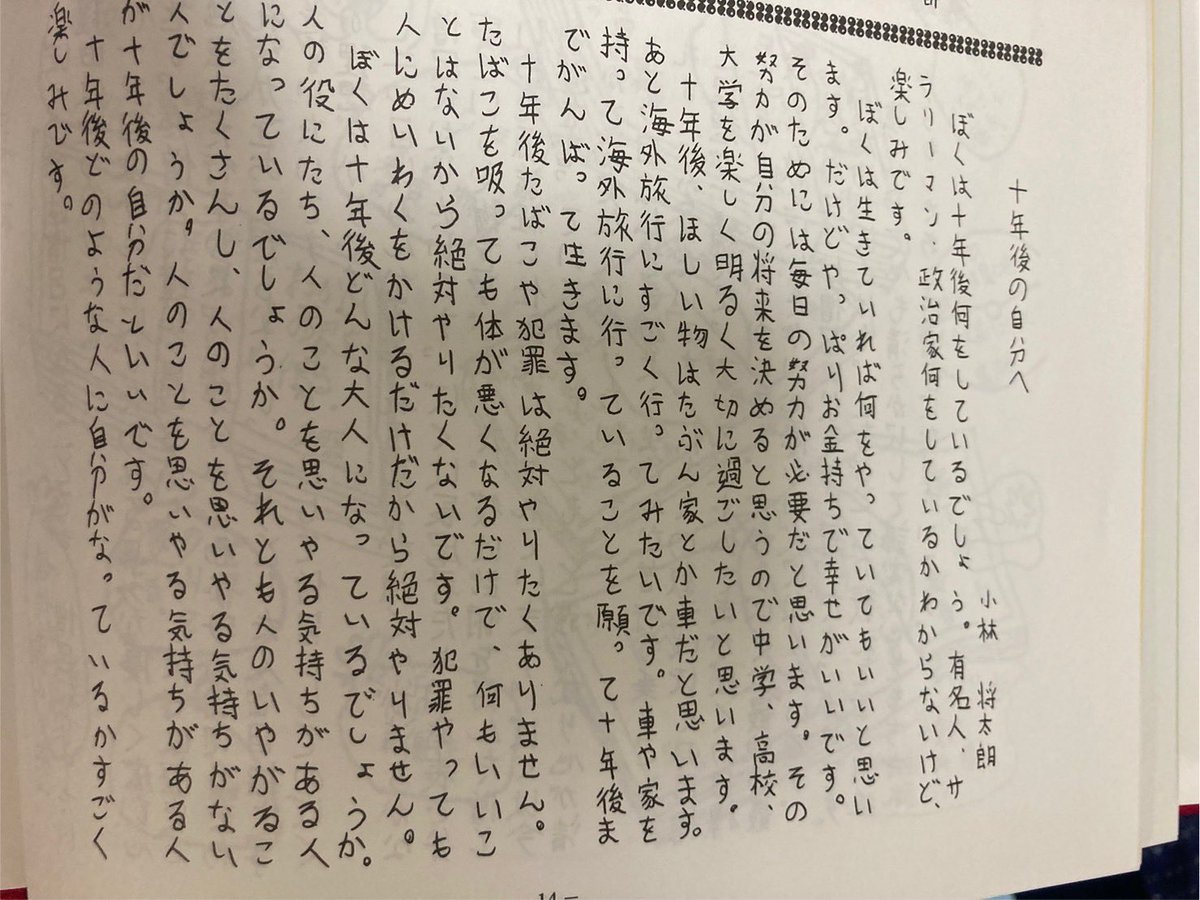 十年後の自分へ
小林 将太朗
ぼくは十年後何をしているでしょう。有名人、サ
ラリーマン、政治家何をしているかわからないけど、
楽しみです。
ぼくは生きていれば何をやっていてもいいと思い
ます。だけどやっぱりお金持ちで幸せがいいです。
そのためには毎日の努力が必要だと思います。その
努力が自分の将来を決めると思うので中学、高校、
大学を楽しく明るく大切に過ごしたいと思います。
十年後、ほしい物はたぶん家とか車だと思います。
あと海外旅行にすごく行ってみたいです。車や家を
持って海外旅行に行っていることを願って十年後ま
でがんばって生きます。
十年後たばこや犯罪は絶対やりたくありません。
たばこを吸っても体が悪くなるだけで、何もいいこ
とはないから絶対やりたくないです。犯罪やっても
人にめいわくをかけるだけだから絶対やりません。
ぼくは十年後どんな大人になっているでしょうか。
人の役にたち、人のことを思いやる気持ちがある人
になっているでしょうか。それとも人のいやがるこ
とをたくさんし、人のことを思いやる気持ちがない
人でしょうか。人のことを思いやる気持ちがある人
が十年後の自分だといいです。
十年後どのような人に自分がなっているかすごく
楽しみです。
14 –